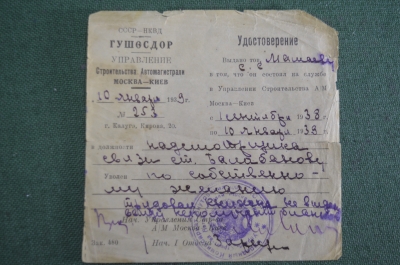 СССР—НКВД
ГУШОСДОР
УПРАВЛЕНИЕ
Строительства Автомагистрали
МОСКВА—КИЕВ
10 января 1939 г.
№ 253
г. Калуга, Кирова, 35.
Удостоверение
Выдано тов. Мамаеву
С. С.
в том, что он состоял на службе
в Управлении Строительства А М
Москва-Киев
с 1 сентября 1938
по 10 января 1938.
в должности надсмотрщика
связи ст. Балабаново
Уволен по собственно-
му желанию
трудовая книжка не выда
Нач. Управления
А М Москва-Киев
Нач. I Отдела
Зак. 480